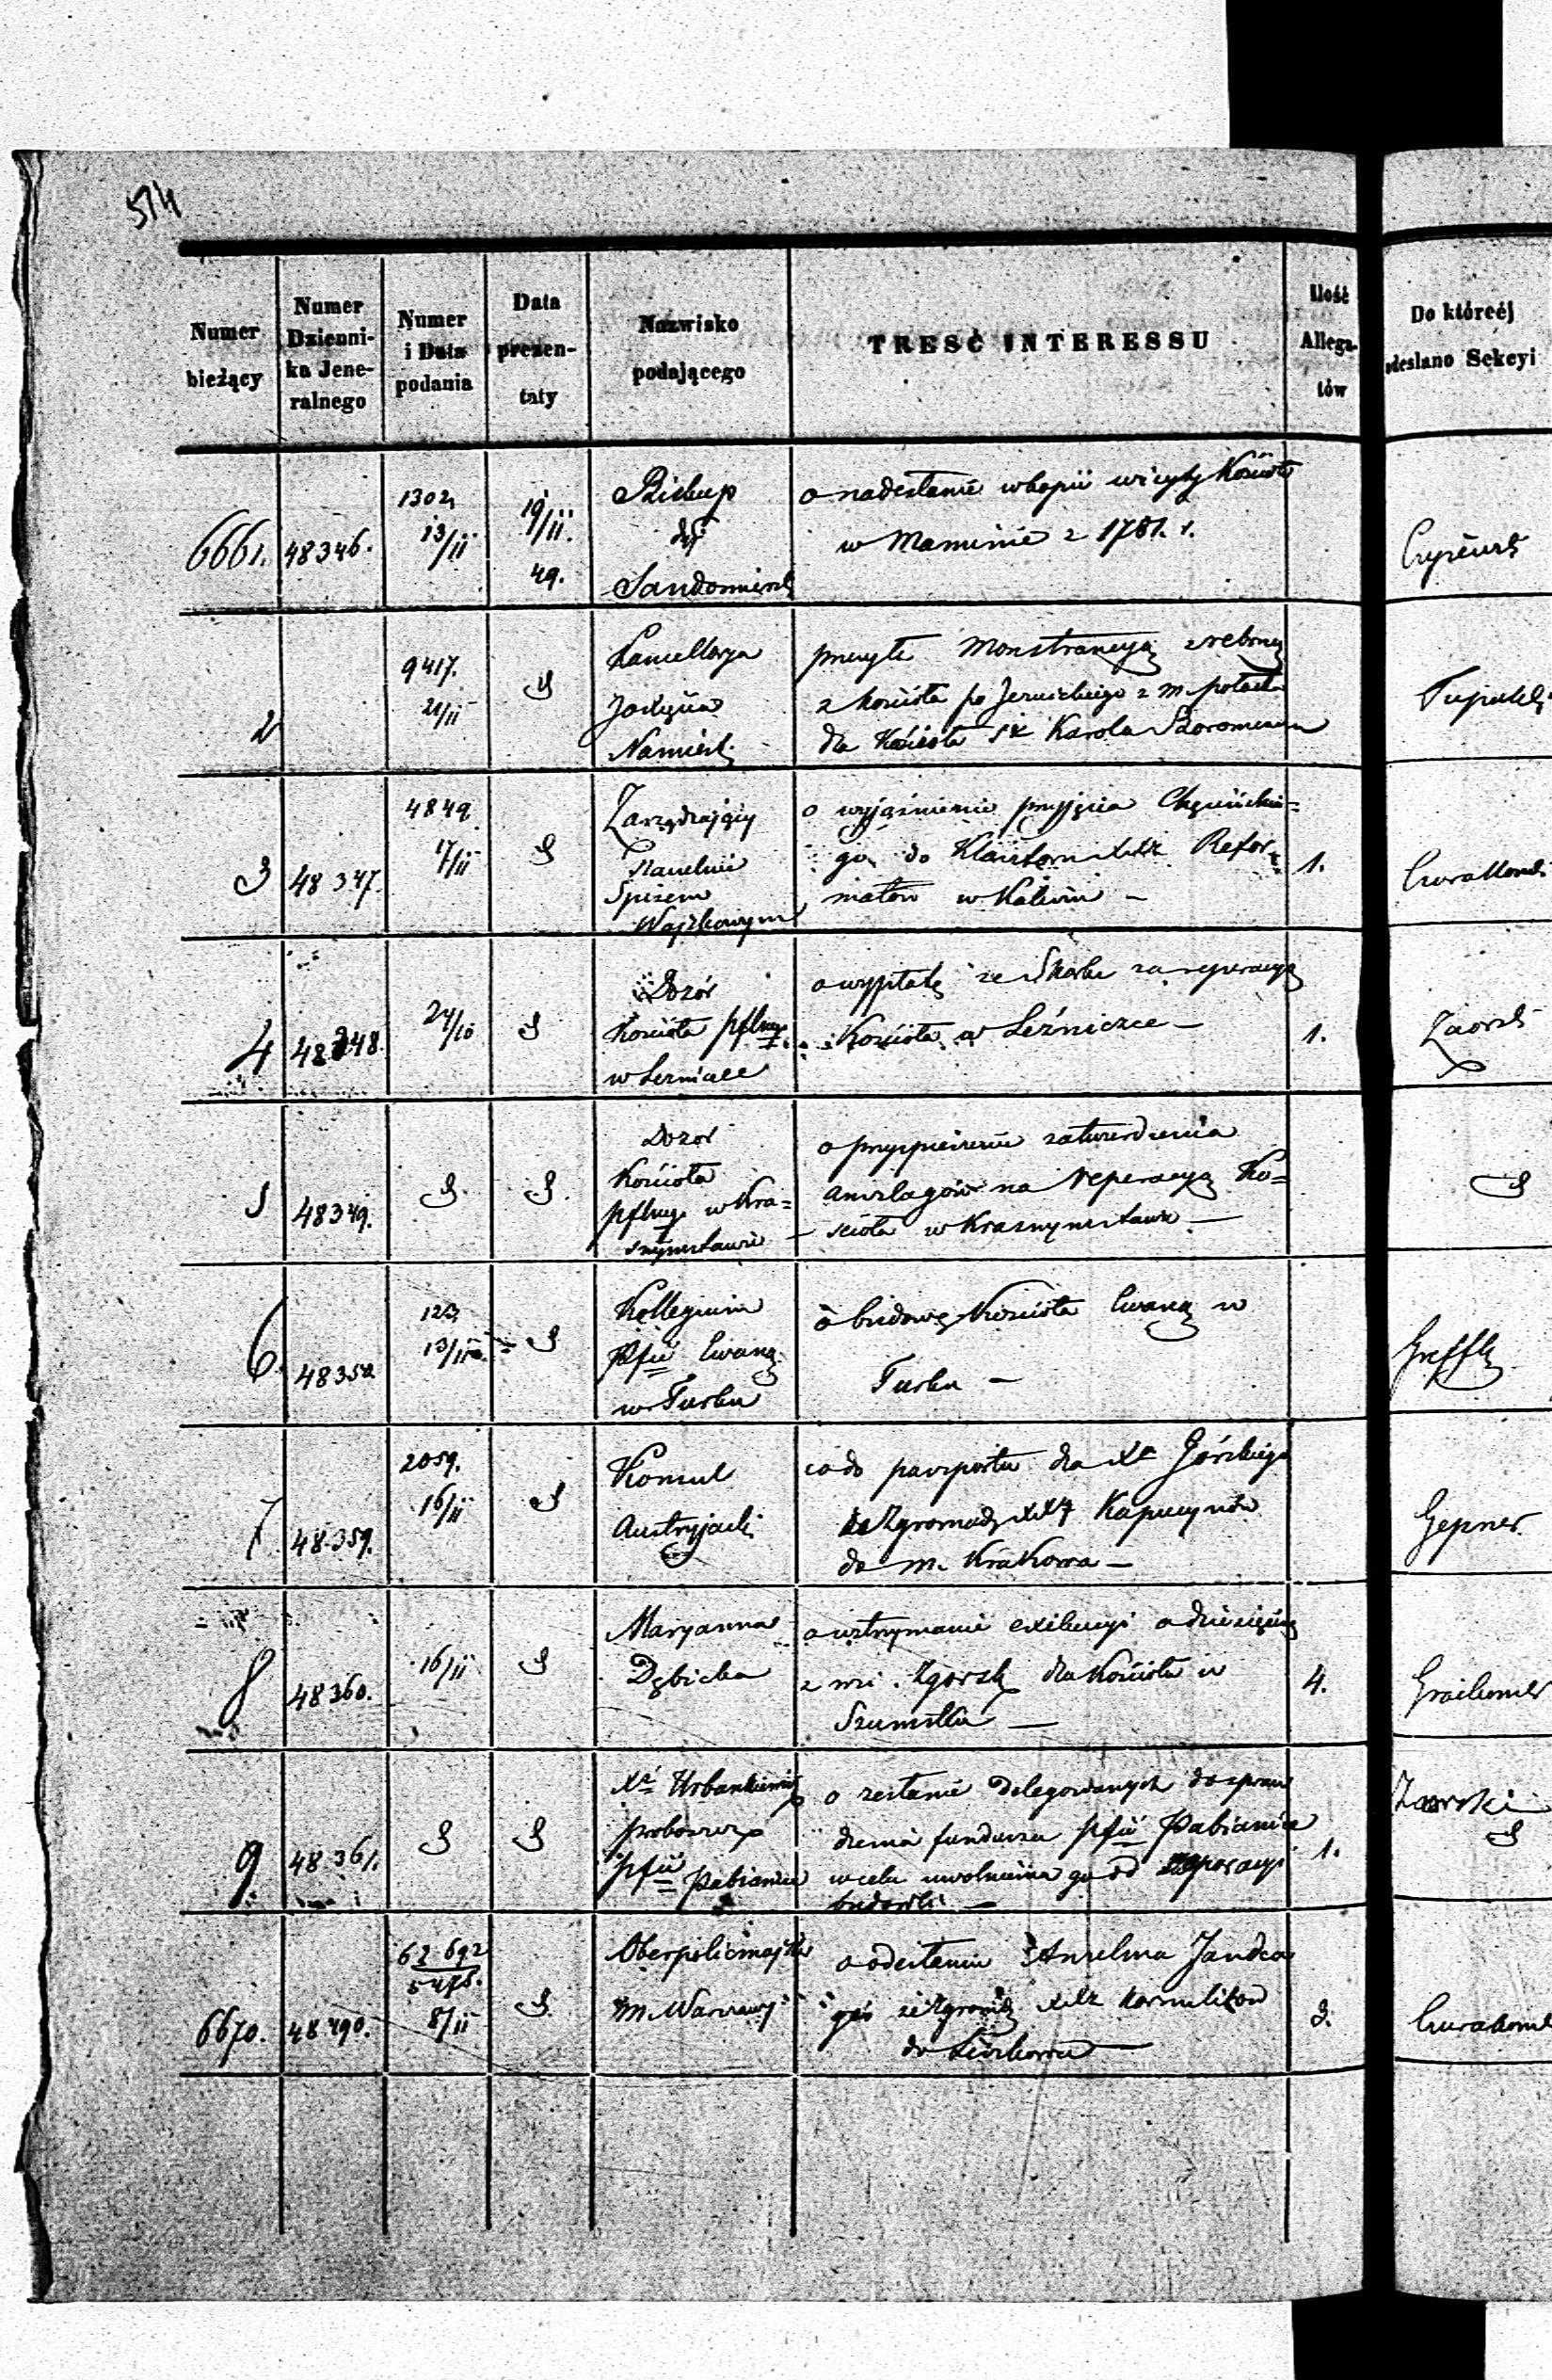 514
Numer bieżący
Numer Dzienni- ka Jene- ralnego
Numer i Data podania
Data prezen- taty
Nazwisko podającego
TREŚĆ INTERESSU
Ilość Allega- tów
Do któreéj odesłano Sekcyi
6661. 48346. 1302
13/11
19/11.
49.
Biskup
Sandomirski
o nadesłanie w kopii wizyty Kościoła
w z 1781. r.
2
9417.
21/11
S
Kancellarya
Namiest.
przesyła Monstrancyą srebrną
z kościoła po z m. Połocka
dla Kościoła Sgo Karola Boromeusza
3 48347.
4849
17/11
S
Zarządzający
Spisem
Wojskowym
o wyjaśnienie przyjęcia Chęcińskie=
go do Klasztoru Refor=
matów w
1.
4 48348.
24/10
S
Dozór
Kościoła pflnego
w Leźnicce
o wypłatę ze Skarbu za reperacyą
Kościoła w Leźnicce —
1.
Zaorski
5 48349. S S.
Dozór
Kościoła
pflnego w Kra=
snymstawie —
o przyspieszenie zatwierdzenia
anszlagów na reperacyą Ko=
scioła w Krasnymstawie —
S
6. 48352
123
13/11
S
Kollegium
Pfii Ewang.
w Turku
o budowę Kościoła Ewang. w
Turku —
7. 48.359.
2059.
16/11
S
Konsul
Austryjacki
co do paszportu dla Xa Górskiego
ze Zgromadz. XX Kapucynów
do m. Krakowa —
Gepner
8 48360.
16/11
S
Maryanna
Dębicka
o wstrzymanie exekucyi o dziesięcinę
z wsi Zgorsk dla Kościoła w
—
4.
9 48361. S S
Xd Urbankiewicz
proboszcz
pfii Pabianice
o zesłanie delegowanych do spraw
dzenia funduszu pfii Pabianice
w celu uwolnienia go od reparacyi
budowli —
1.
Zaorski
S
6670. 48490.
62692
5475.
8/11
S.
Oberpolicmajster
m. Warszawy
o odesłaniu Anzelma
ze Zgromadz. XX Karmelitów
do —
3.